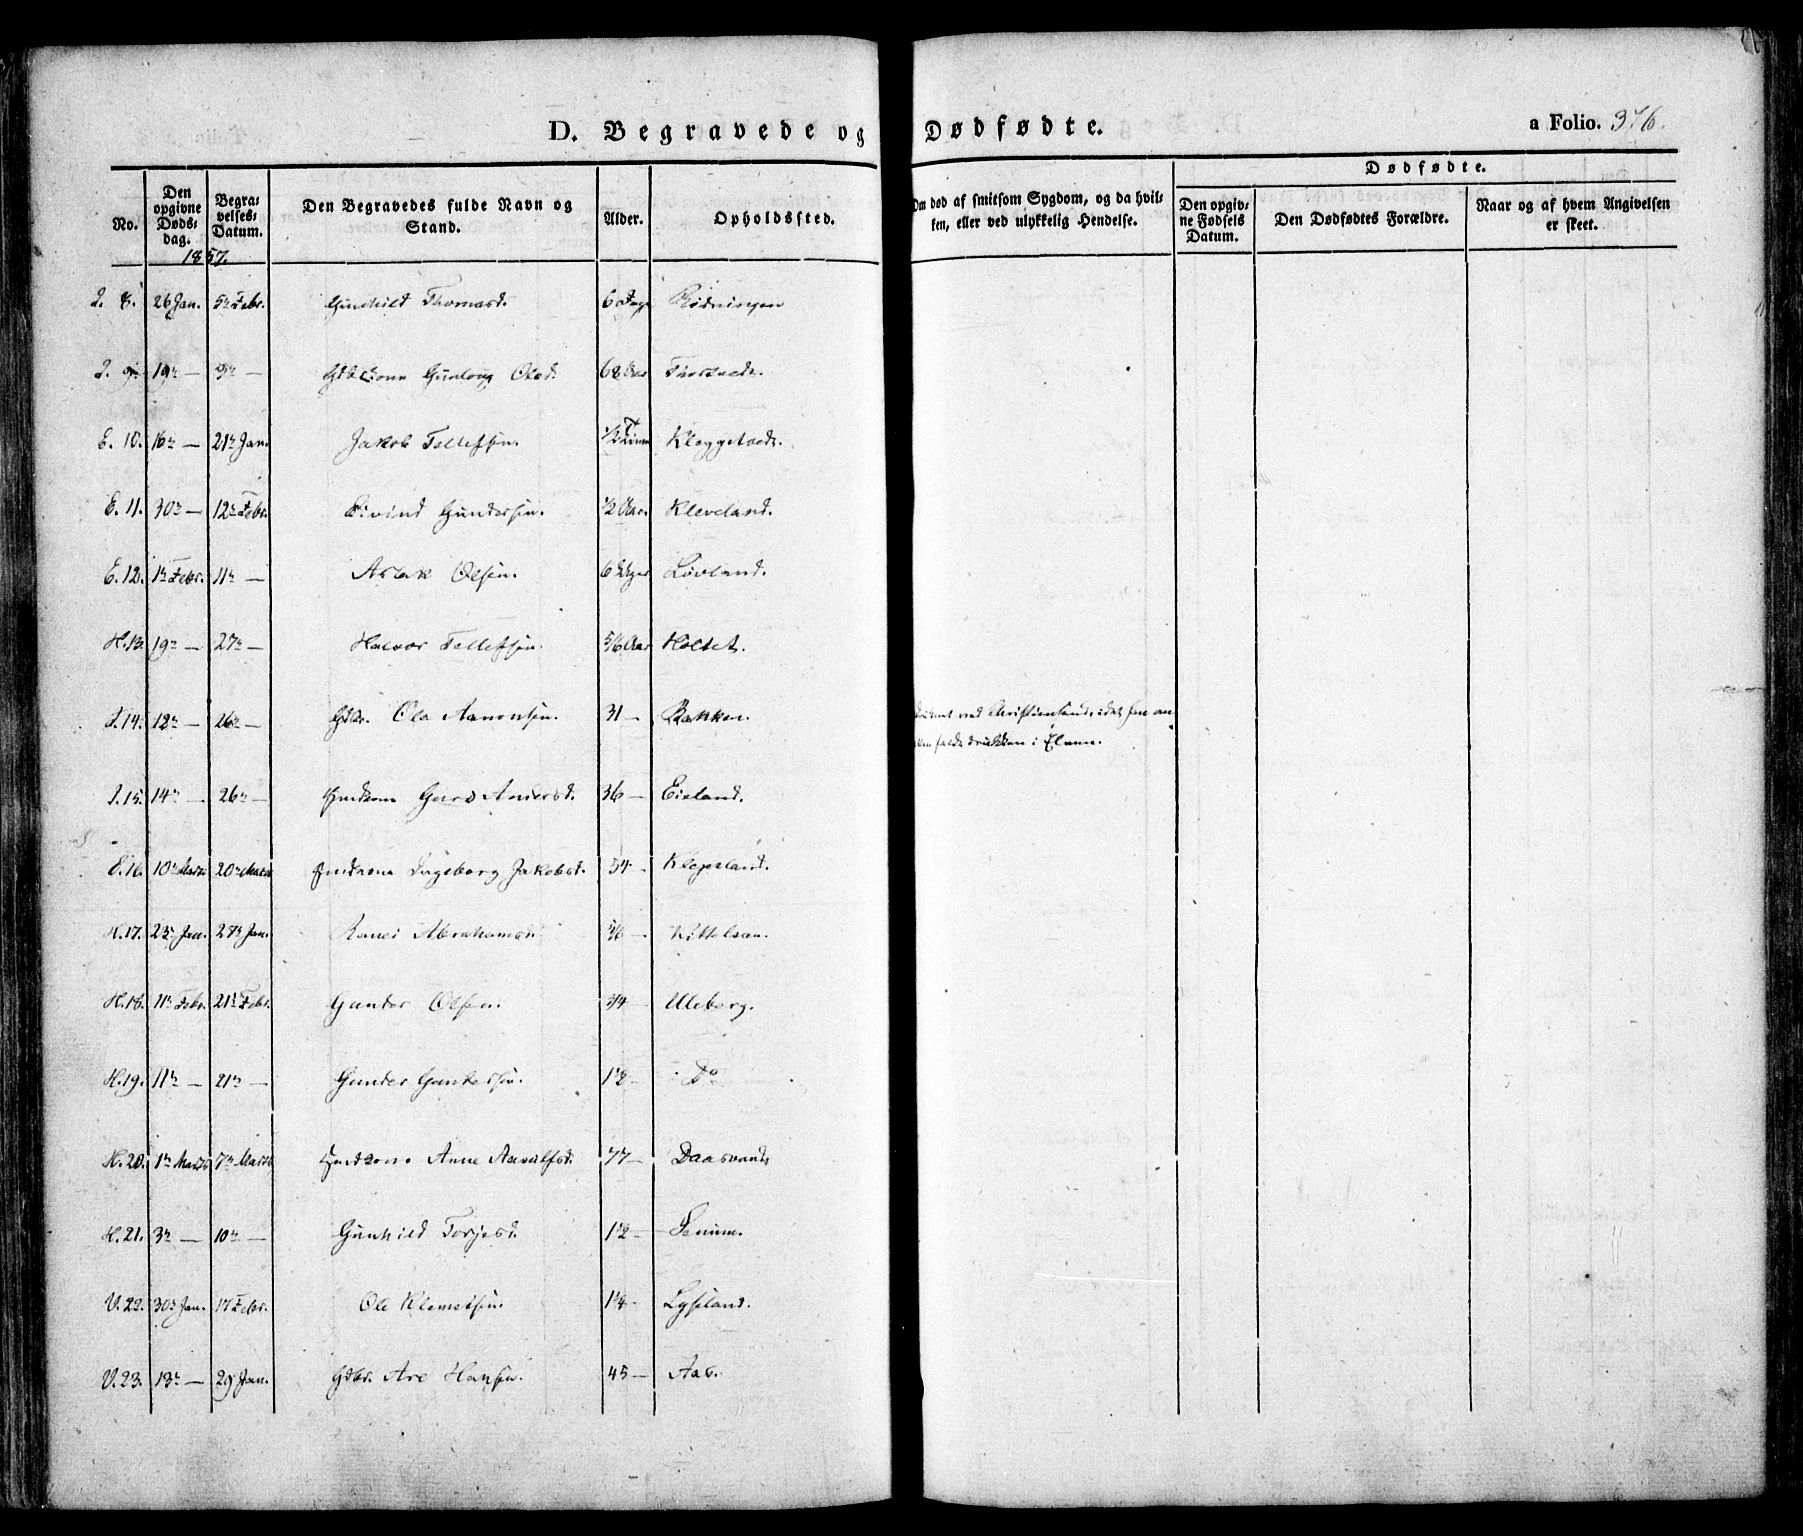 D. Begravede og Dødfødte.
a Folio. 376.
No.
Den opgivne Dødsdag.
Begravelses-Datum.
Den Begravedes fulde Navn og Stand.
Alder.
Opholdssted.
Om død af smitsom Sygdom, og da hvilken, eller ved ulykkelig Hendelse.
Dødfødte.
Den opgivne Fødsels Datum.
Den Dødfødtes Forældre.
Naar og af hvem Angivelsen er skeet.
1857.
8. 26 Jan. 5 Febr. Gunhild Thomasd. 6 Dage
9. 19 — 9 — Gunlaug Olsd. 68 Aar
E. 10. 16 — 21 Jan. Jakob Tellefsen. 1/2 Time
E. 11. 30 — 12 Febr. Eivind Gundersen. 1/2 Aar. Kleveland.
E. 12. 1 Febr. 11 — Aslak Olsen. 6 Løvland.
H. 13. 19 — 27 — Halvor Tellefsen. 5/6 Aar Holtet.
14. 12 — 26 — Gdbr. Ola Aanonsen. 31 — Bakken.
ved Christiansand, idet han
drukken i Elven.
15. 14 — 26 — Guro Andersd. 36 — Eieland.
E. 16. 10 Marts 20 Marts Ingeborg Jakobsd. 54 —
H. 17. 23 Jan. 27 Jan. Abrahamsd. Kittelsaa.
H. 18. 11 Febr. 21 Febr. Gunder Olsen. 3/4 — Uleberg.
H. 19. 11 — 21 — Gunder Gundersen. 1 1/2 — Do
H. 20. 1 Marts 7 Marts Anne 77 — Daasvand
H. 21. 3 — 10 — Gunhild Torjesd. 1 1/2 — Senum.
V. 22. 30 Jan. 17 Febr. Ole Klemetsen 1 1/4 — Lyseland.
V. 23. 13 — 29 Jan. Gdbr. Are Hansen. 45 —